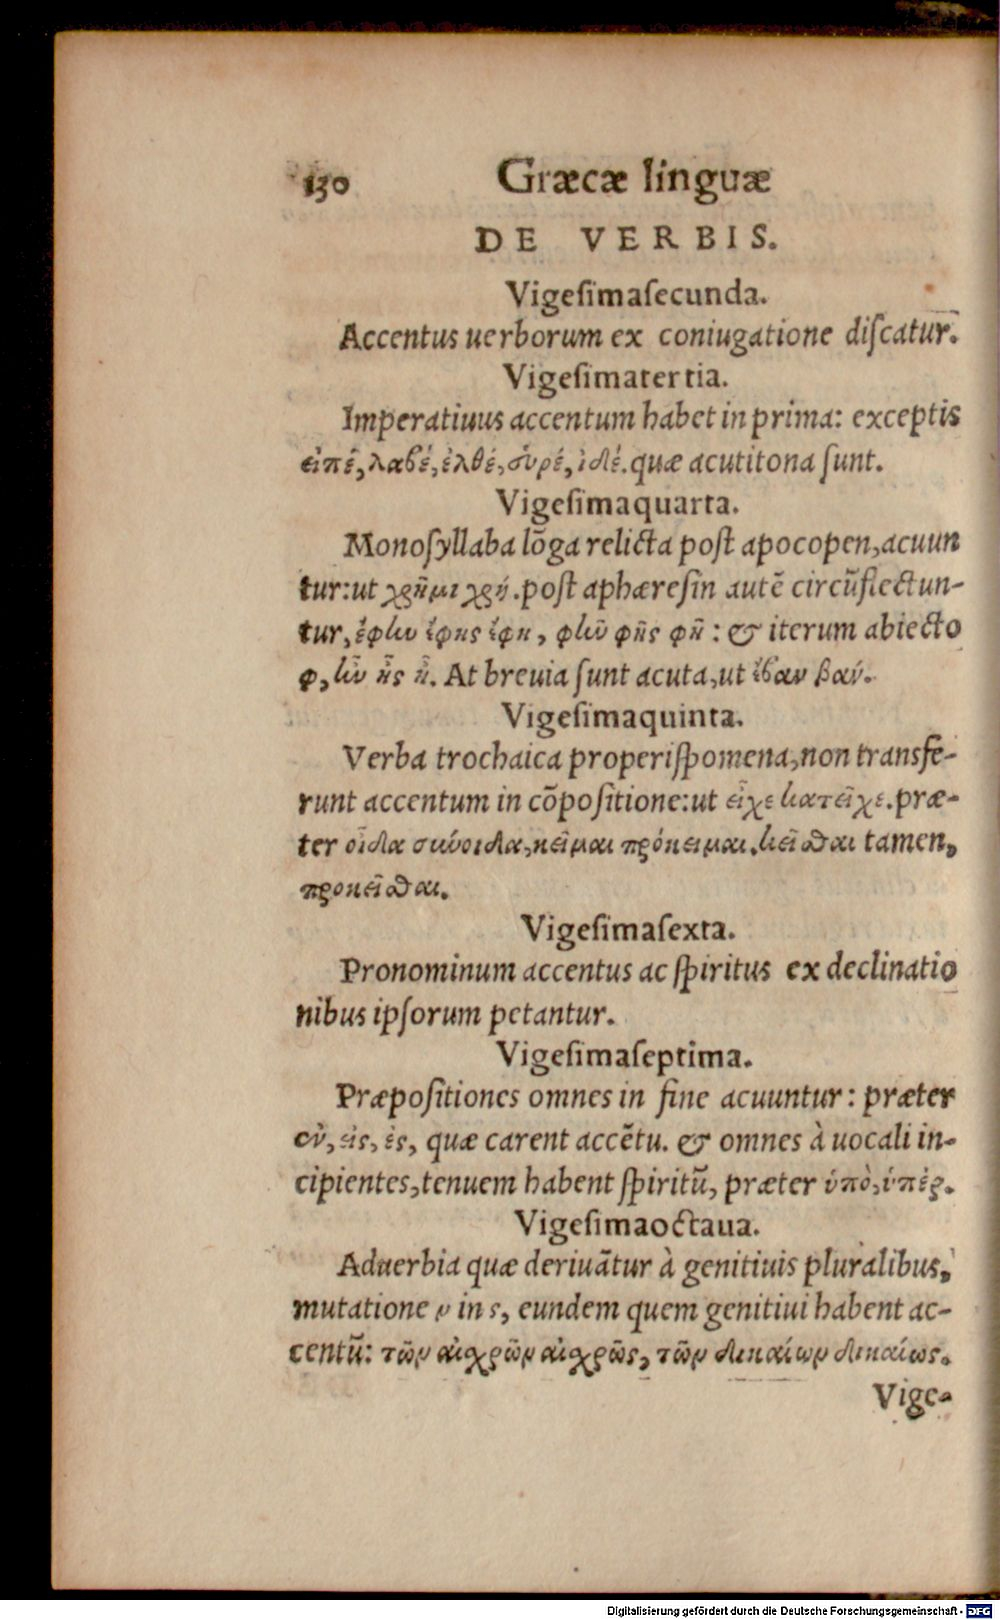 130 Græcæ linguæ
DE VERBIS.
Vigesimasecunda.
Accentus uerborum ex coniugatione discatur.
Vigesimatertia.
Imperatiuus accentum habet in prima: exceptis
εἰπέ, λαβέ, ἐλθέ, εὑρέ, ἰδέ. quæ acutitona sunt.
Vigesimaquarta.
Monosyllaba lōga relicta post apocopen, acuun
tur: ut χρῆμι χρή. post aphæresin autē circūflectun-
tur, ἔφην ἔφης ἔφη, φῆν φῆς φῆ: & iterum abiecto
φ, ἦν ἦς ἦ. At breuia sunt acuta, ut ἔβαν βάν.
Vigesimaquinta.
Verba trochaica properispomena, non transfe-
runt accentum in cōpositione: ut εἶχε κατεῖχε. præ-
ter οἶδα σύνοιδα, κεῖμαι πρόκειμαι. κεῖσθαι tamen,
προκεῖσθαι.
Vigesimasexta.
Pronominum accentus ac spiritus ex declinatio
nibus ipsorum petantur.
Vigesimaseptima.
Præpositiones omnes in fine acuuntur: præter
ἐν, εἰς, ἐς, quæ carent accētu. & omnes à uocali in-
cipientes, tenuem habent spiritū, præter ὑπὸ, ὑπέρ.
Vigesimaoctaua.
Aduerbia quæ deriuātur à genitiuis pluralibus,
mutatione ν in ς, eundem quem genitiui habent ac-
centū: τῶν αἰσχρῶν αἰσχρῶς, τῶν δικαίων δικαίως.
Vige-
Digitalisierung gefördert durch die Deutsche Forschungsgemeinschaft - DFG